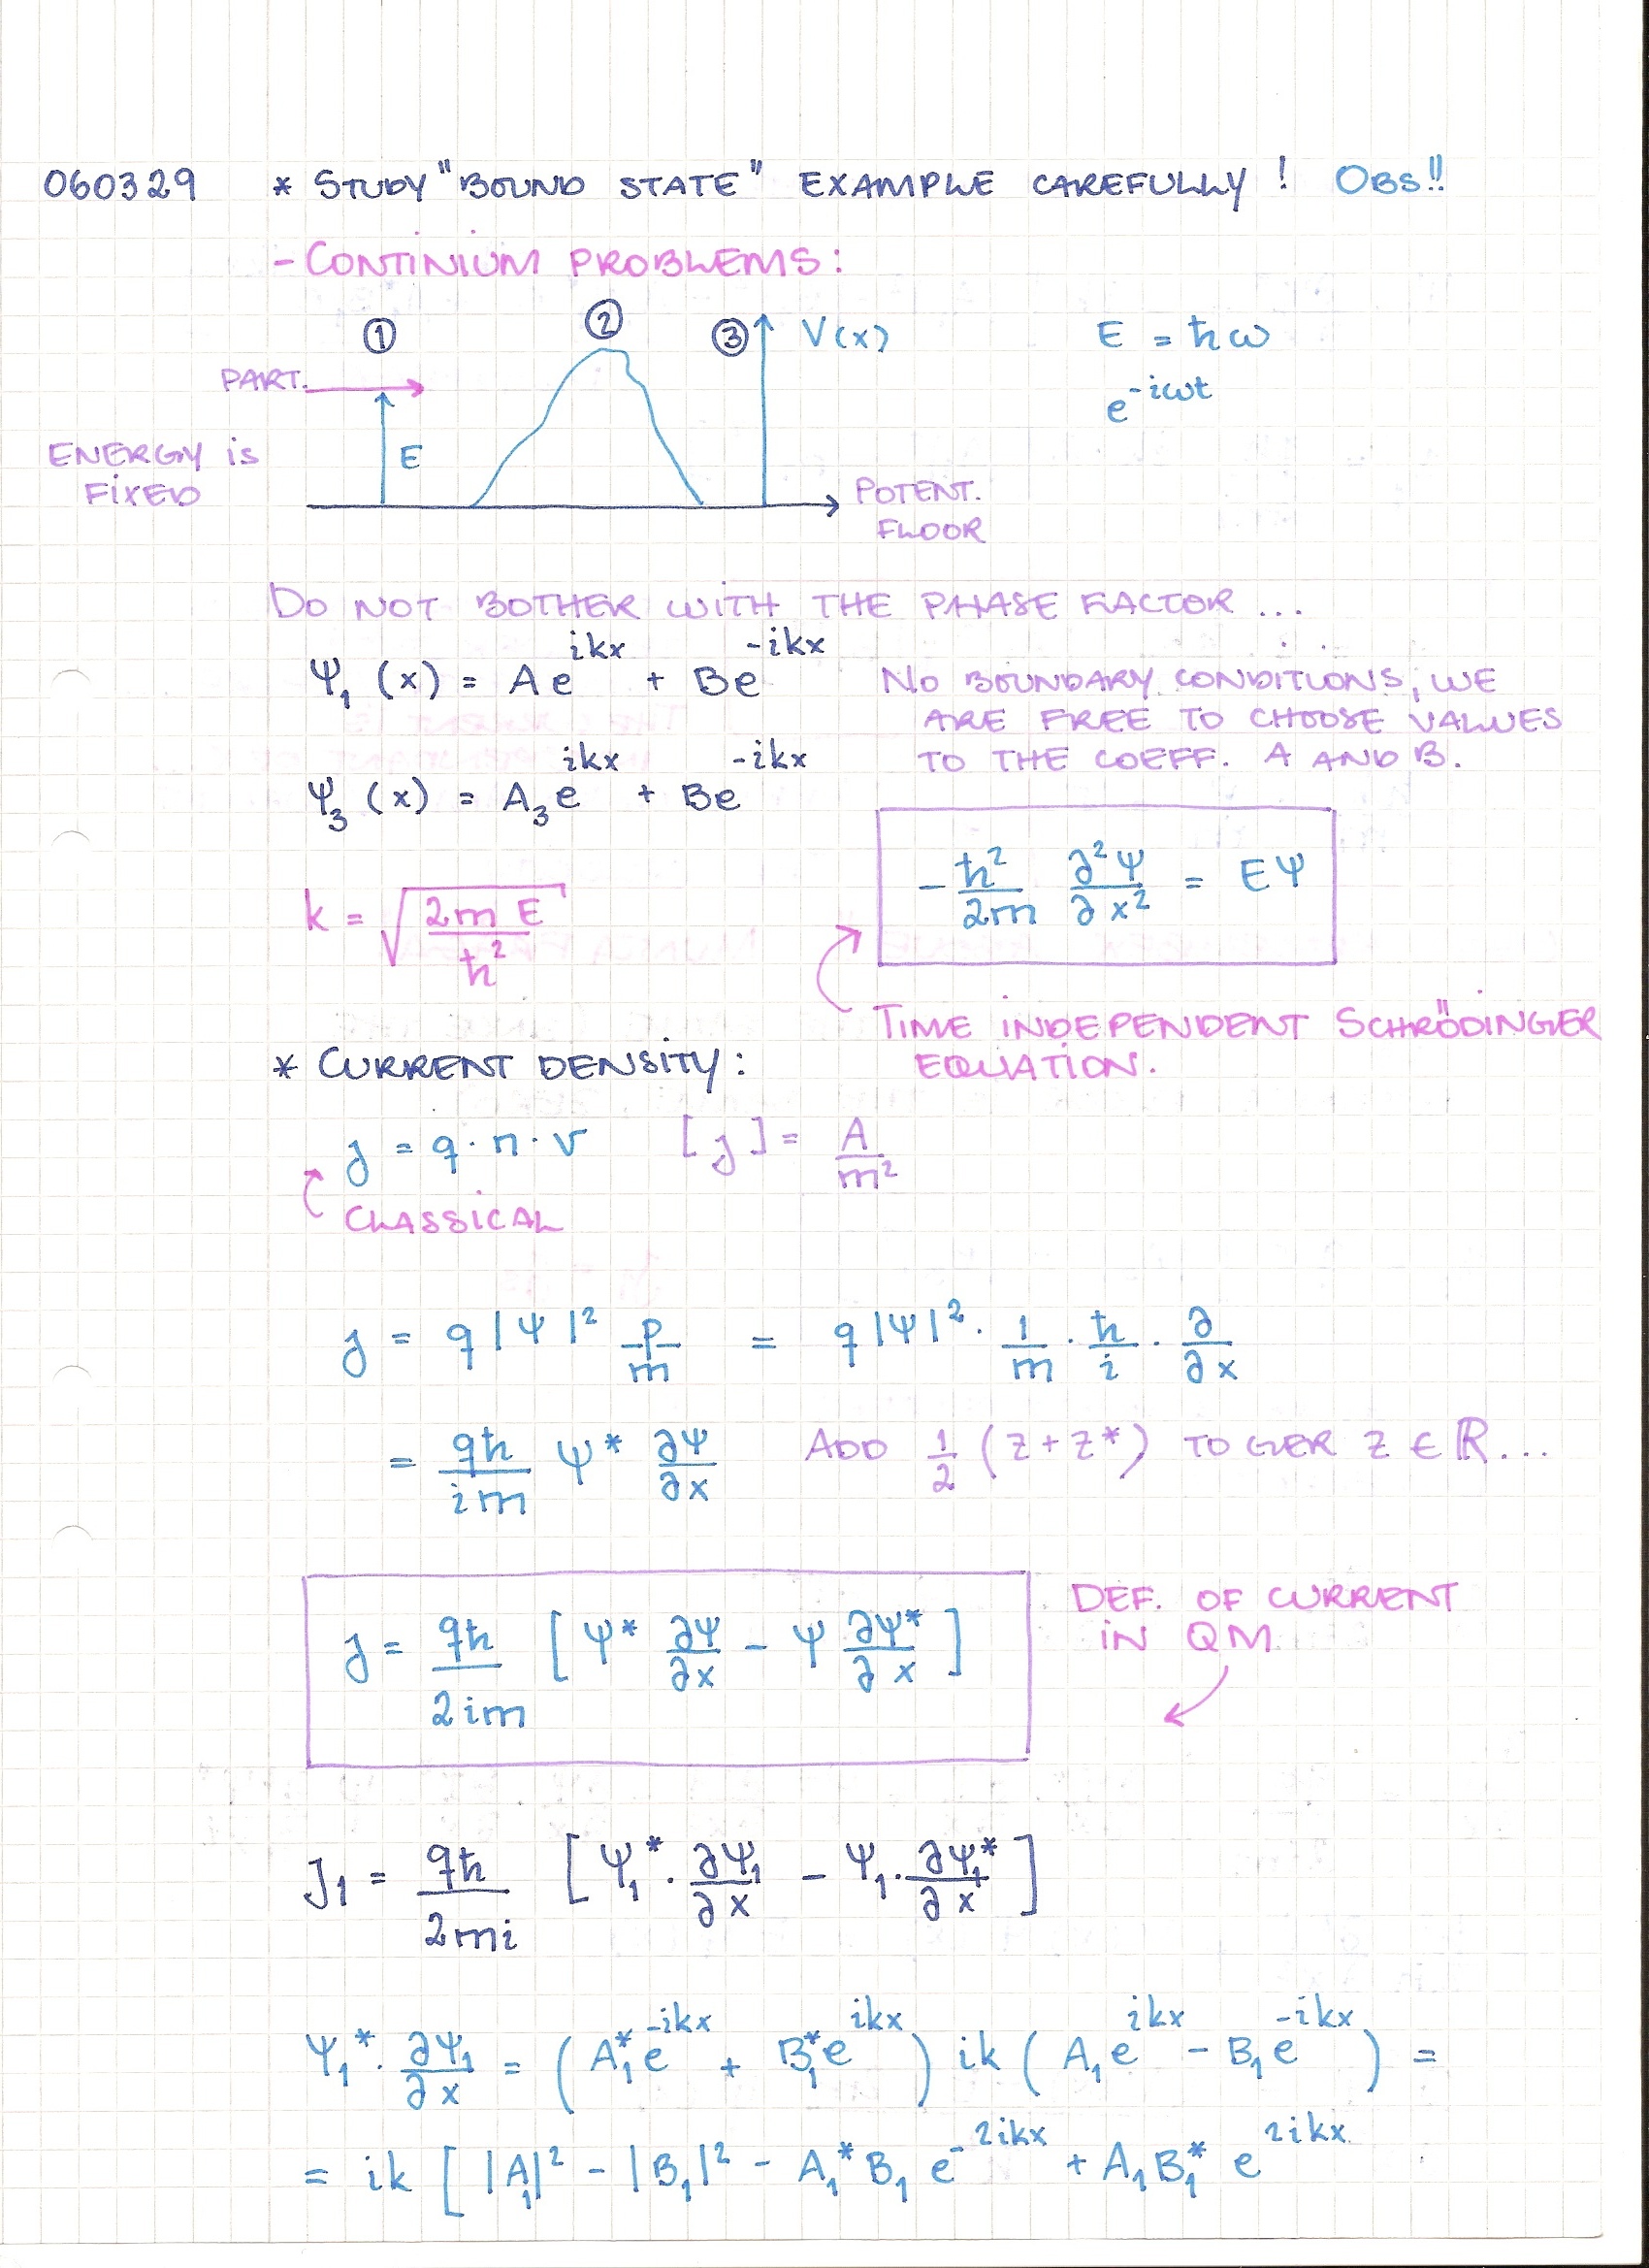 060329 * STUDY "BOUND STATE" EXAMPLE CAREFULLY! OBS!!
- CONTINIUM PROBLEMS:
① ② ③ V(x) E = ħω
PART. e^{-iωt}
ENERGY is E
FIXED POTENT.
FLOOR
DO NOT BOTHER WITH THE PHASE FACTOR ...
Ψ₁ (x) = A e^{ikx} + Be^{-ikx} NO BOUNDARY CONDITIONS, WE
ARE FREE TO CHOOSE VALUES
TO THE COEFF. A AND B.
Ψ₃ (x) = A₃e^{ikx} + Be^{-ikx}
-ħ²/2m ∂²Ψ/∂x² = EΨ
k = √(2mE/ħ²)
TIME INDEPENDENT SCHRÖDINGER
EQUATION.
* CURRENT DENSITY:
j = q · n · v [j] = A/m²
CLASSICAL
j = q|Ψ|² p/m = q|Ψ|² · 1/m · ħ/i · ∂/∂x
= qħ/im Ψ* ∂Ψ/∂x ADD ½ (z + z*) TO GER z ∈ ℝ...
j = qħ/2im [Ψ* ∂Ψ/∂x - Ψ ∂Ψ*/∂x] DEF. OF CURRENT
IN QM
J₁ = qħ/2mi [Ψ₁* · ∂Ψ₁/∂x - Ψ₁ · ∂Ψ₁*/∂x]
Ψ₁* · ∂Ψ₁/∂x = (A₁*e^{-ikx} + B₁*e^{ikx}) ik (A₁e^{ikx} - B₁e^{-ikx}) =
= ik [|A₁|² - |B₁|² - A₁*B₁ e^{-2ikx} + A₁B₁* e^{2ikx}